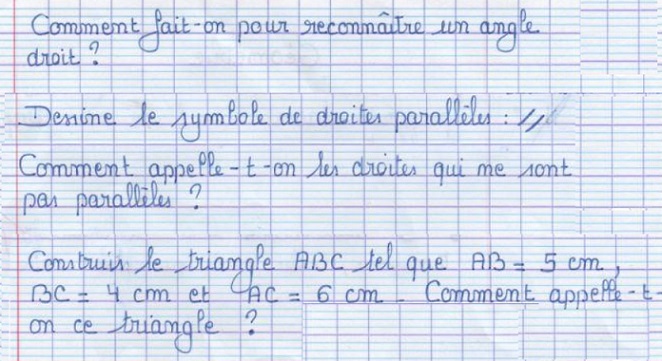 Comment fait-on pour reconnaître un angle
droit ?
Dessine le symbole de droites parallèles : //
Comment appelle-t-on les droites qui ne sont
pas parallèles ?
Construis le triangle ABC tel que AB = 5 cm,
BC = 4 cm et AC = 6 cm. Comment appelle-t-
on ce triangle ?